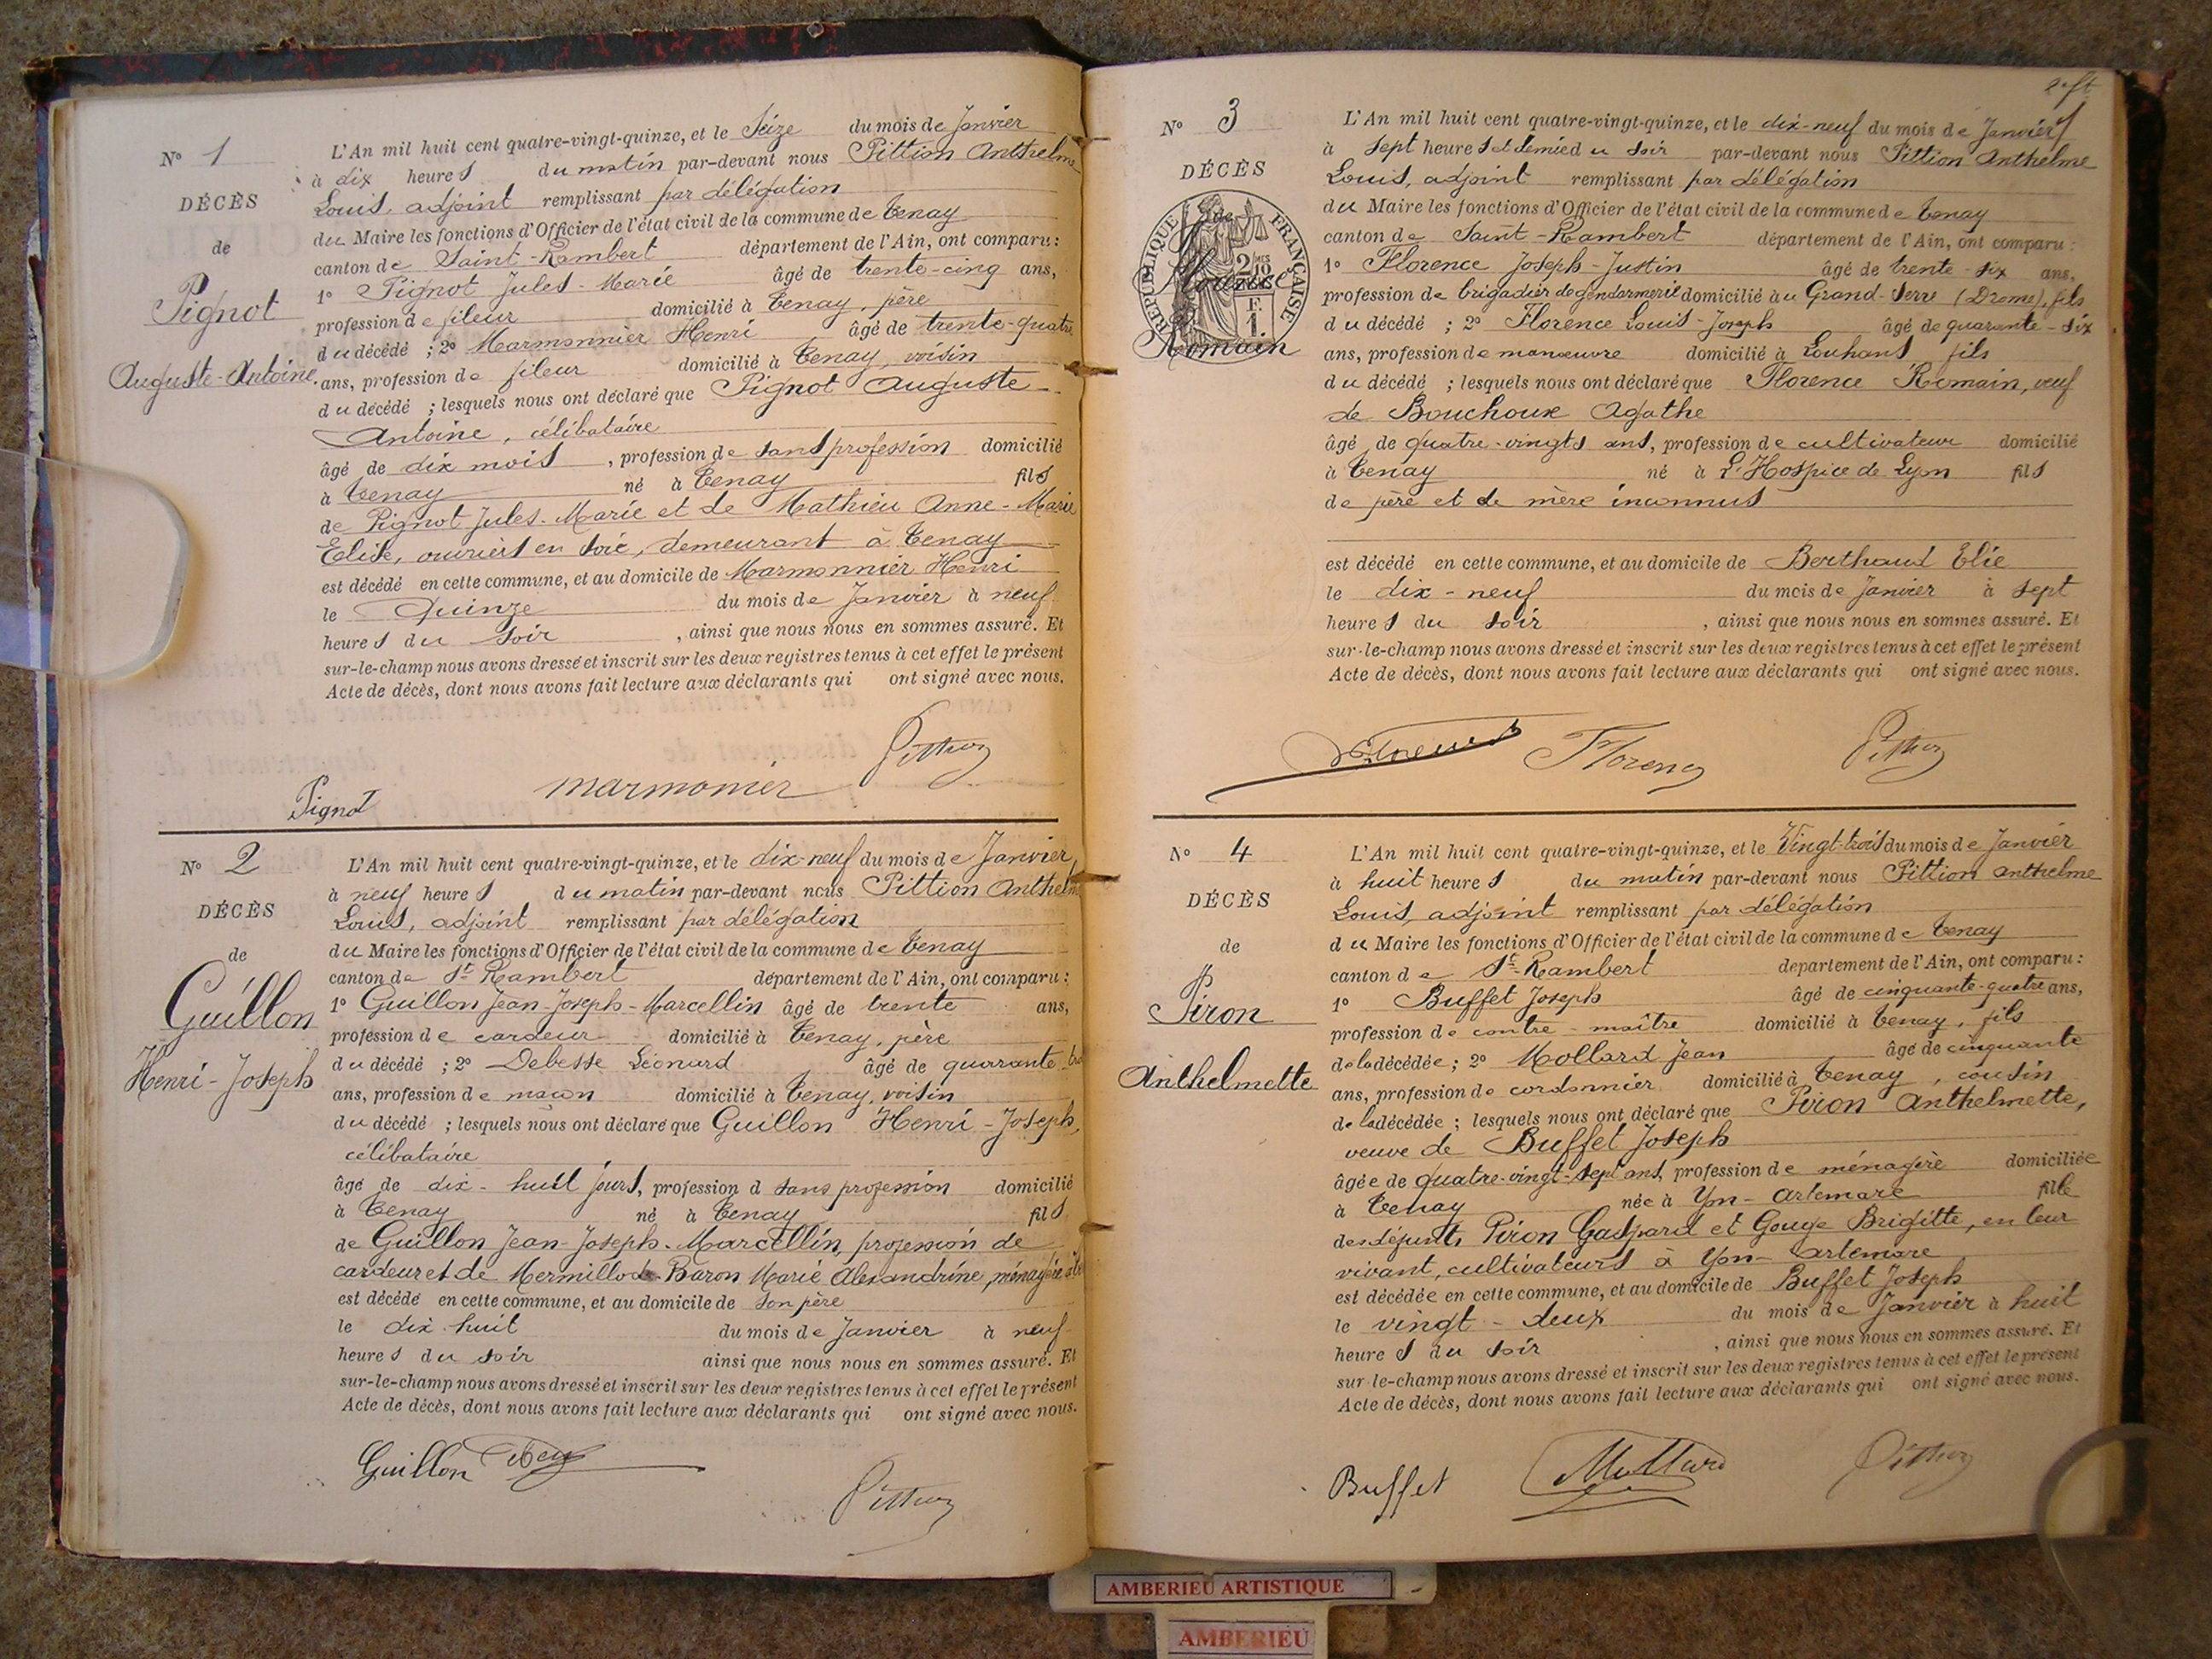 N° 1
DÉCÈS
de
Pignot
Auguste-Antoine.
L'An mil huit cent quatre-vingt-quinze, et le Seize du mois de Janvier
à dix heures du matin par-devant nous Pittion Anthelme
Louis, adjoint remplissant par délégation
du Maire les fonctions d'Officier de l'état civil de la commune de Tenay
canton de Saint-Rambert département de l'Ain, ont comparu :
1° Pignot Jules-Marie âgé de trente-cinq ans,
profession de fileur domicilié à Tenay, père
du décédé ; 2° Marmonnier Henri âgé de trente-quatre
ans, profession de fileur domicilié à Tenay, voisin
du décédé ; lesquels nous ont déclaré que Pignot Auguste
Antoine, célibataire
âgé de dix mois, profession de sans profession domicilié
à Tenay né à Tenay fils
de Pignot Jules-Marie et de Mathieu Anne-Marie
Elise, ouvriers en soie, demeurant à Tenay
est décédé en cette commune, et au domicile de Marmonnier Henri
le Quinze du mois de Janvier à neuf
heures du soir, ainsi que nous nous en sommes assuré. Et
sur-le-champ nous avons dressé et inscrit sur les deux registres tenus à cet effet le présent
Acte de décès, dont nous avons fait lecture aux déclarants qui ont signé avec nous.
Pittion
marmonier
Pignot
N° 2
DÉCÈS
de
Guillon
Henri-Joseph
L'An mil huit cent quatre-vingt-quinze, et le dix-neuf du mois de Janvier,
à neuf heures du matin par-devant nous Pittion Anthelme
Louis, adjoint remplissant par délégation
du Maire les fonctions d'Officier de l'état civil de la commune de Tenay
canton de St-Rambert département de l'Ain, ont comparu :
1° Guillon Jean-Joseph-Marcellin âgé de trente ans,
profession de cardeur domicilié à Tenay, père
du décédé ; 2° Debesse Léonard âgé de quarante
ans, profession de maçon domicilié à Tenay, voisin
du décédé ; lesquels nous ont déclaré que Guillon Henri-Joseph,
célibataire
âgé de dix-huit jours, profession d sans profession domicilié
à Tenay né à Tenay fils
de Guillon Jean-Joseph-Marcellin, profession de
cardeur et de Mermillod-Baron Marie Alexandrine, ménagère
est décédé en cette commune, et au domicile de son père
le dix-huit du mois de Janvier à neuf
heures du soir ainsi que nous nous en sommes assuré. Et
sur-le-champ nous avons dressé et inscrit sur les deux registres tenus à cet effet le présent
Acte de décès, dont nous avons fait lecture aux déclarants qui ont signé avec nous.
Guillon
Pittion
N° 3
DÉCÈS
de
RÉPUBLIQUE FRANÇAISE
Florence
Romain
L'An mil huit cent quatre-vingt-quinze, et le dix-neuf du mois de Janvier
à sept heures et demie du soir par-devant nous Pittion Anthelme
Louis, adjoint remplissant par délégation
du Maire les fonctions d'Officier de l'état civil de la commune de Tenay
canton de Saint-Rambert département de l'Ain, ont comparu :
1° Florence Joseph-Justin âgé de trente-six ans,
profession de brigadier de gendarmerie domicilié au Grand-Serre (Drome), fils
du décédé ; 2° Florence Louis-Joseph âgé de quarante-six
ans, profession de manœuvre domicilié à Louhans fils
du décédé ; lesquels nous ont déclaré que Florence Romain, veuf
de Bouchoux Agathe
âgé de quatre-vingts ans, profession de cultivateur domicilié
à Tenay né à L'Hospice de Lyon fils
de père et de mère inconnus
est décédé en cette commune, et au domicile de Berthaud Elie
le dix-neuf du mois de Janvier à sept
heures du soir, ainsi que nous nous en sommes assuré. Et
sur-le-champ nous avons dressé et inscrit sur les deux registres tenus à cet effet le présent
Acte de décès, dont nous avons fait lecture aux déclarants qui ont signé avec nous.
Florence Florence Pittion
N° 4
DÉCÈS
de
Piron
Anthelmette
L'An mil huit cent quatre-vingt-quinze, et le Vingt-trois du mois de Janvier
à huit heures du matin par-devant nous Pittion Anthelme
Louis, adjoint remplissant par délégation
du Maire les fonctions d'Officier de l'état civil de la commune de Tenay
canton de St-Rambert département de l'Ain, ont comparu :
1° Buffet Joseph âgé de cinquante-quatre ans,
profession de contre-maître domicilié à Tenay, fils
de la décédée ; 2° Mollard Jean âgé de cinquante
ans, profession de cordonnier domicilié à Tenay, cousin
de la décédée ; lesquels nous ont déclaré que Piron Anthelmette,
veuve de Buffet Joseph
âgée de quatre-vingt-sept ans, profession de ménagère domiciliée
à Tenay née à Yon-Artemare fille
des défunts Piron Gaspard et Gouge Brigitte, en leur
vivant, cultivateurs à Yon-Artemare
est décédée en cette commune, et au domicile de Buffet Joseph
le vingt-deux du mois de Janvier à huit
heures du soir, ainsi que nous nous en sommes assuré. Et
sur-le-champ nous avons dressé et inscrit sur les deux registres tenus à cet effet le présent
Acte de décès, dont nous avons fait lecture aux déclarants qui ont signé avec nous.
Buffet Mollard Pittion
AMBERIEU ARTISTIQUE
AMBERIEU